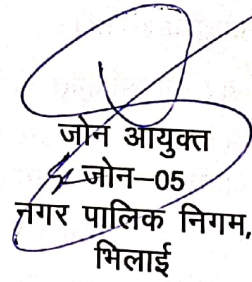 जोन आयुक्त
जोन–05
नगर पालिक निगम,
भिलाई